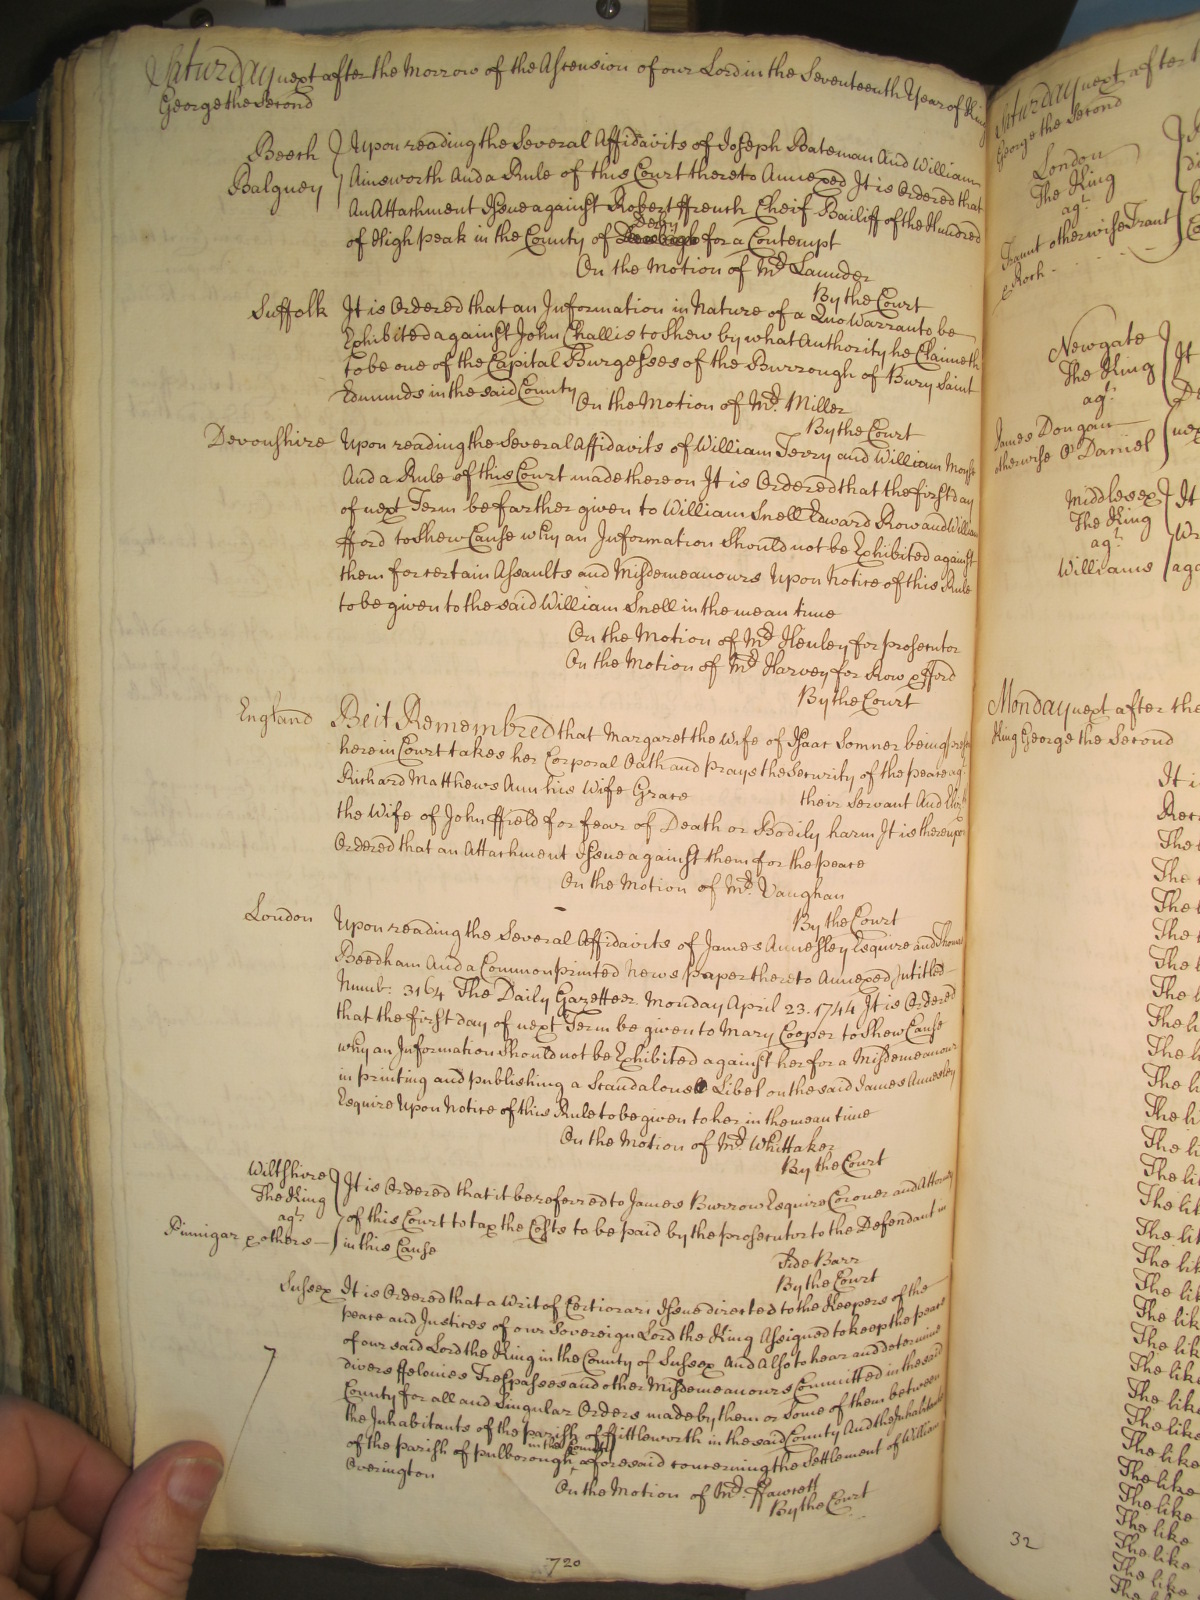 Saturday next after the Morrow of the Ascension of our Lord in the Seventeenth Year of King
George the Second
Beech
Balguey
Upon reading the Several Affidavits of Joseph Bateman And William
Ainsworth And a Rule of this Court thereto Annexed It is Ordered that
An Attachment Issue against Robert ffrench Cheif Bailiff of the Hundred
Derby
of High peak in the County of for a Contempt
On the Motion of Mr. Launder
By the Court
Suffolk It is Ordered that an Information in Nature of a Quo Warranto be
Exhibited against John Challis to shew by what Authority he Claimeth
to be one of the Capital Burgesses of the Burrough of Bury Saint
Edmunds in the said County
On the Motion of Mr. Miller
By the Court
Devonshire Upon reading the Several Affidavits of William Terry and William
And a Rule of this Court made thereon It is Ordered that the first day
of next Term be farther given to William Snell Edward Row and William
fford to shew Cause why an Information should not be Exhibited against
them for certain Assaults and Misdemeanours Upon Notice of this Rule
to be given to the said William Snell in the mean time
On the Motion of Mr. Henley for prosecutor
On the Motion of Mr. Harvey for Row & fford
By the Court
England Beit Remembred that Margaret the Wife of Isaac Somner being
here in Court takes her Corporal Oath and prays the Security of the peace agt.
Richard Matthews Ann his Wife Grace their Servant And
the Wife of John ffield for fear of Death or Bodily harm It is thereupon
Ordered that an Attachment Issue against them for the peace
On the Motion of Mr. Vaughan
By the Court
London Upon reading the Several Affidavits of James Annesley Esquire and Thomas
Beedham And a Common printed News paper thereto Annexed Intitled
Numb: 3164 The Daily Gazetteer Monday April 23. 1744 It is Ordered
that the first day of next Term be given to Mary Cooper to shew Cause
why an Information should not be Exhibited against her for a Misdemeanour
in printing and publishing a Scandalous Libel on the said James Annesley
Esquire Upon Notice of this Rule to be given to her in the mean time
On the Motion of Mr. Whittaker
By the Court
Wiltshire
The King
agt.
Pinnigar & others
It is Ordered that it be referred to James Burrow Esquire Coroner and Attorney
of this Court to tax the Costs to be paid by the prosecutor to the Defendant
in this Cause
Side Barr
By the Court
Sussex It is Ordered that a Writ of Certiorari Issue directed to the Keepers of the
peace and Justices of our Sovereign Lord the King Assigned to keep the peace
of our said Lord the King in the County of Sussex And Also to hear and determine
divers ffelonies Trespasses and other Misdemeanours Committed in the said
County for all and Singular Orders made by them or Some of them between
the Inhabitants of the parish of ffittleworth in the said County And the Inhabitants
in the County
of the parish of pulborough aforesaid concerning the Settlement of William
Overington
On the Motion of Mr. ffawcett
By the Court
720
Saturday next after
George the Second
London
The King
agt.
Traunt otherwise Trant
& Roch
Newgate
The King
agt.
James Dongan
otherwise O Daniel
It
Middlesex
The King
agt.
Williams
It
Monday next after the
King George the Second
The like
The like
The like
The like
The like
The like
The like
The like
The like
The like
32